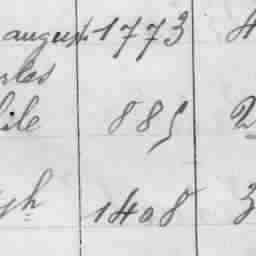 august 1773 4
rles
ile 885 2
gh 1408 3